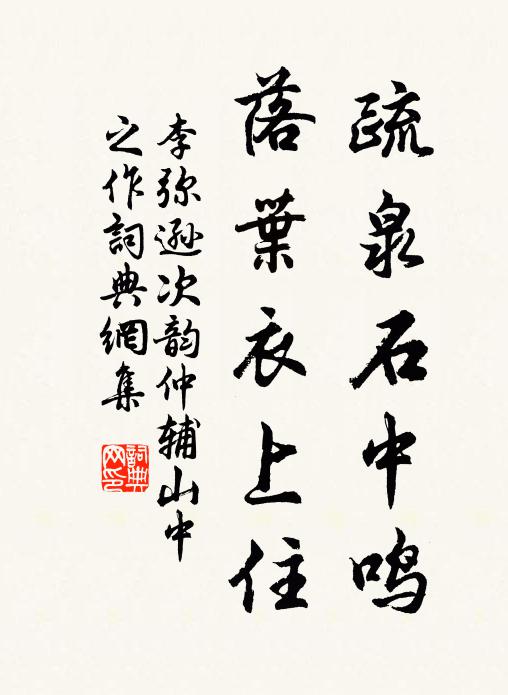 疏泉石中鸣
落葉衣上住
李弥遜次韵仲辅山中
之作詞典網集
詞典
网印